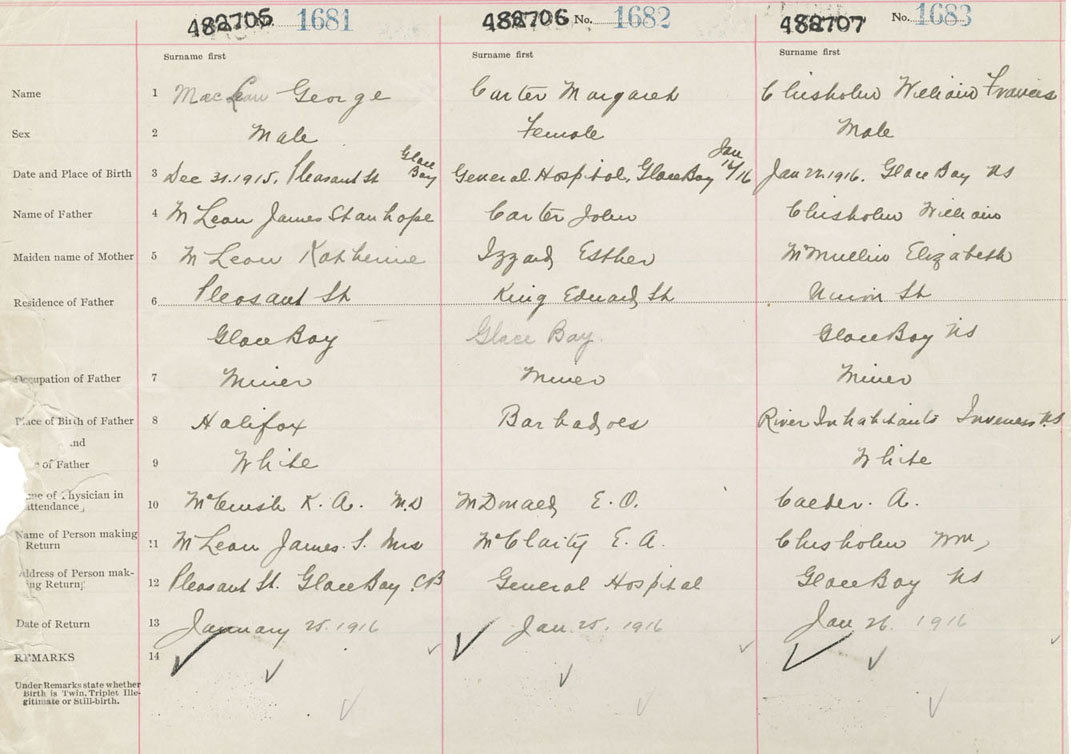 482705 1681 482706 No. 1682 482707 No. 1683
Surname first Surname first Surname first
Name 1 MacLean George Carter Margaret Chisholm William Francis
Sex 2 Male Female Male
Date and Place of Birth 3 Dec 31. 1915, Pleasant St Glace Bay General Hospital, Glace Bay Jan 16/16 Jan 22. 1916. Glace Bay NS
Name of Father 4 McLean James Stanhope Carter John Chisholm William
Maiden name of Mother 5 McLean Katherine Izzard Esther McMullin Elizabeth
Residence of Father 6 Pleasant St King Edward St Union St
Glace Bay Glace Bay. Glace Bay NS
Occupation of Father 7 Miner Miner Miner
Place of Birth of Father 8 Halifax Barbadoes River Inhabitants Inverness N.S
nd
of Father 9 White White
me of Physician in
attendance 10 McCuish K. A. M.D McDonald E. O. Calder. A.
Name of Person making
Return 11 McLean James. S. Mrs McClarty E. A. Chisholm Wm,
Address of Person mak-
ing Return 12 Pleasant St. Glace Bay. C.B General Hospital Glace Bay NS
Date of Return 13 January 25. 1916 Jan 25. 1916 Jan 26. 1916
REMARKS 14
Under Remarks state whether
Birth is Twin, Triplet Ille-
gitimate or Still-birth.